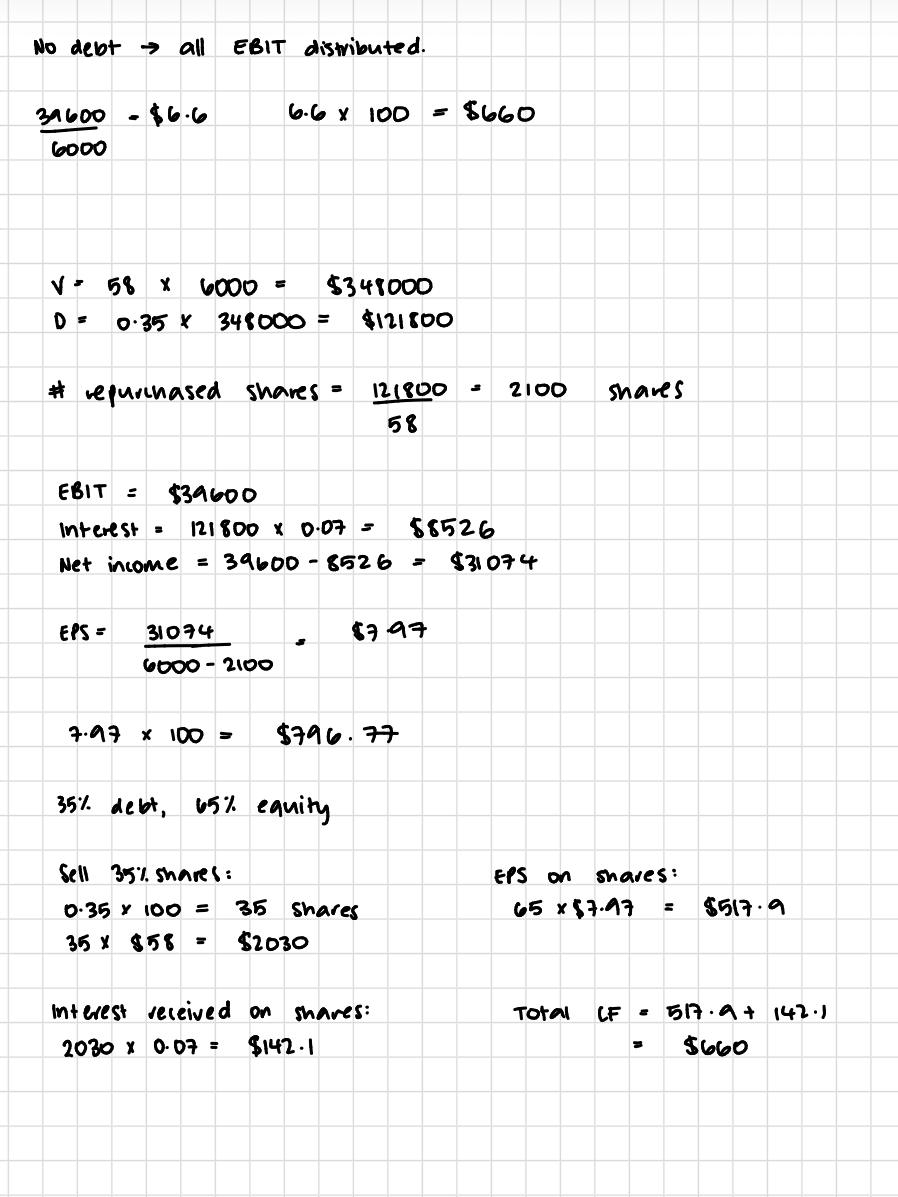 No debt → all EBIT distributed.
39600 = $6.6 6.6 x 100 = $660
6000
V = 58 x 6000 = $348000
D = 0.35 x 348000 = $121800
# repurchased shares = 121800 = 2100 shares
58
EBIT = $39600
Interest = 121800 x 0.07 = $8526
Net income = 39600 - 8526 = $31074
EPS = 31074 = $7.97
6000 - 2100
7.97 x 100 = $796.77
35% debt, 65% equity
Sell 35% shares:
0.35 x 100 = 35 shares
35 x $58 = $2030
EPS on shares:
65 x $7.97 = $517.9
Interest received on shares:
2030 x 0.07 = $142.1
Total CF = 517.9 + 142.1
= $660